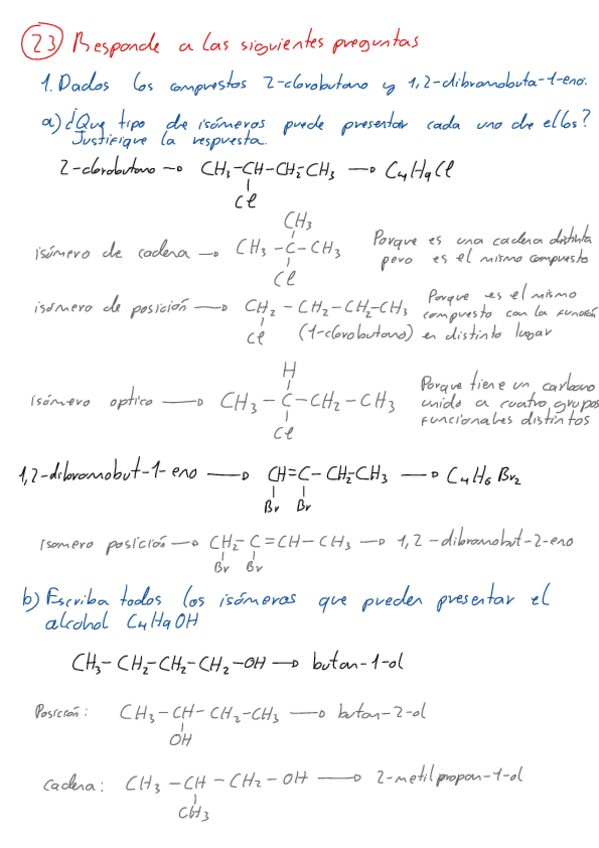 23) Responde a las siguientes preguntas
1. Dados los compuestos 2-clorobutano y 1,2-dibromobuta-1-eno.
a) ¿Que tipo de isómeros puede presentar cada uno de ellos?
Justifique la respuesta.
2-clorobutano → CH3-CH-CH2-CH3 → C4H9Cl
Cl
CH3
isómero de cadena → CH3-C-CH3 Porque es una cadena distinta
pero es el mismo compuesto
Cl
isómero de posición → CH2-CH2-CH2-CH3 Porque es el mismo
compuesto con la función
Cl (1-clorobutano) en distinto lugar
H
isómero optico → CH3-C-CH2-CH3 Porque tiene un carbono
unido a cuatro grupos
funcionales distintos
Cl
1,2-dibromobut-1-eno → CH=C-CH2-CH3 → C4H6Br2
Br Br
Isomero posición → CH2-C=CH-CH3 → 1,2-dibromobut-2-eno
Br Br
b) Escriba todos los isómeros que pueden presentar el
alcohol C4H9OH
CH3-CH2-CH2-CH2-OH → butan-1-ol
Posición: CH3-CH-CH2-CH3 → butan-2-ol
OH
cadena: CH3-CH-CH2-OH → 2-metilpropan-1-ol
CH3